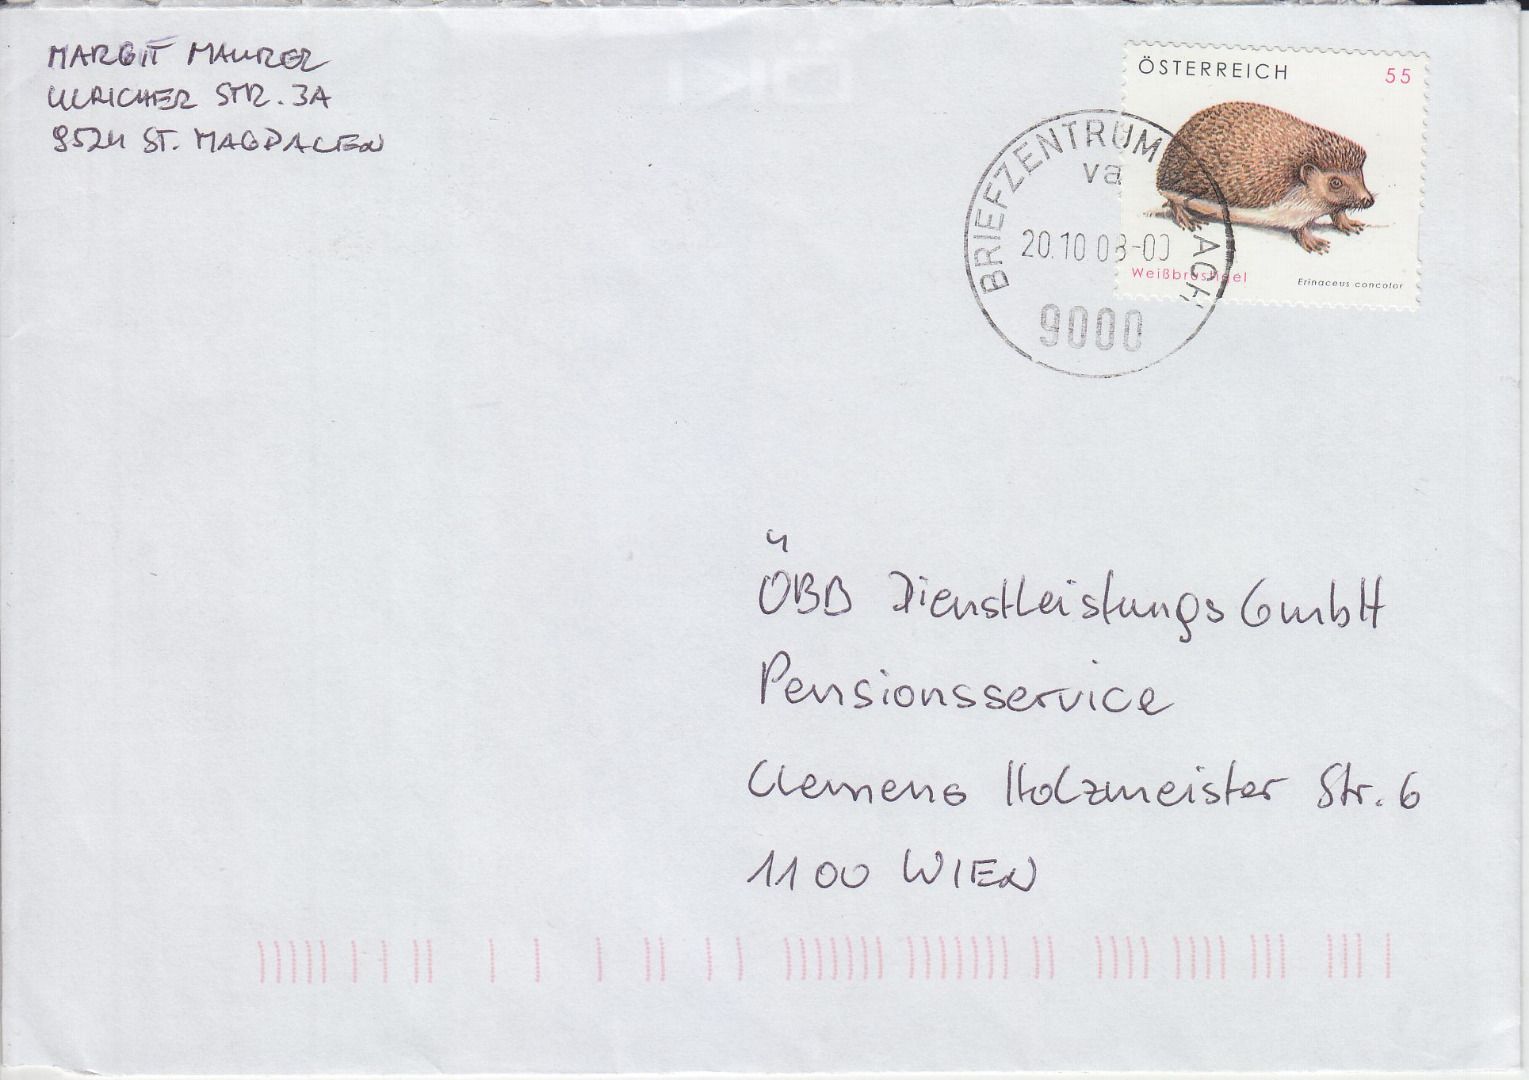 MARGIT MAURER
ULRICHER STR. 3A
9524 ST. MAGDALEN
ÖSTERREICH 55
BRIEFZENTRUM ACH
va
20.10 08-00
9000
Weißbrustigel
Erinaceus concolor
ÖBB Dienstleistungs GmbH
Pensionsservice
Clemens Holzmeister Str. 6
1100 WIEN